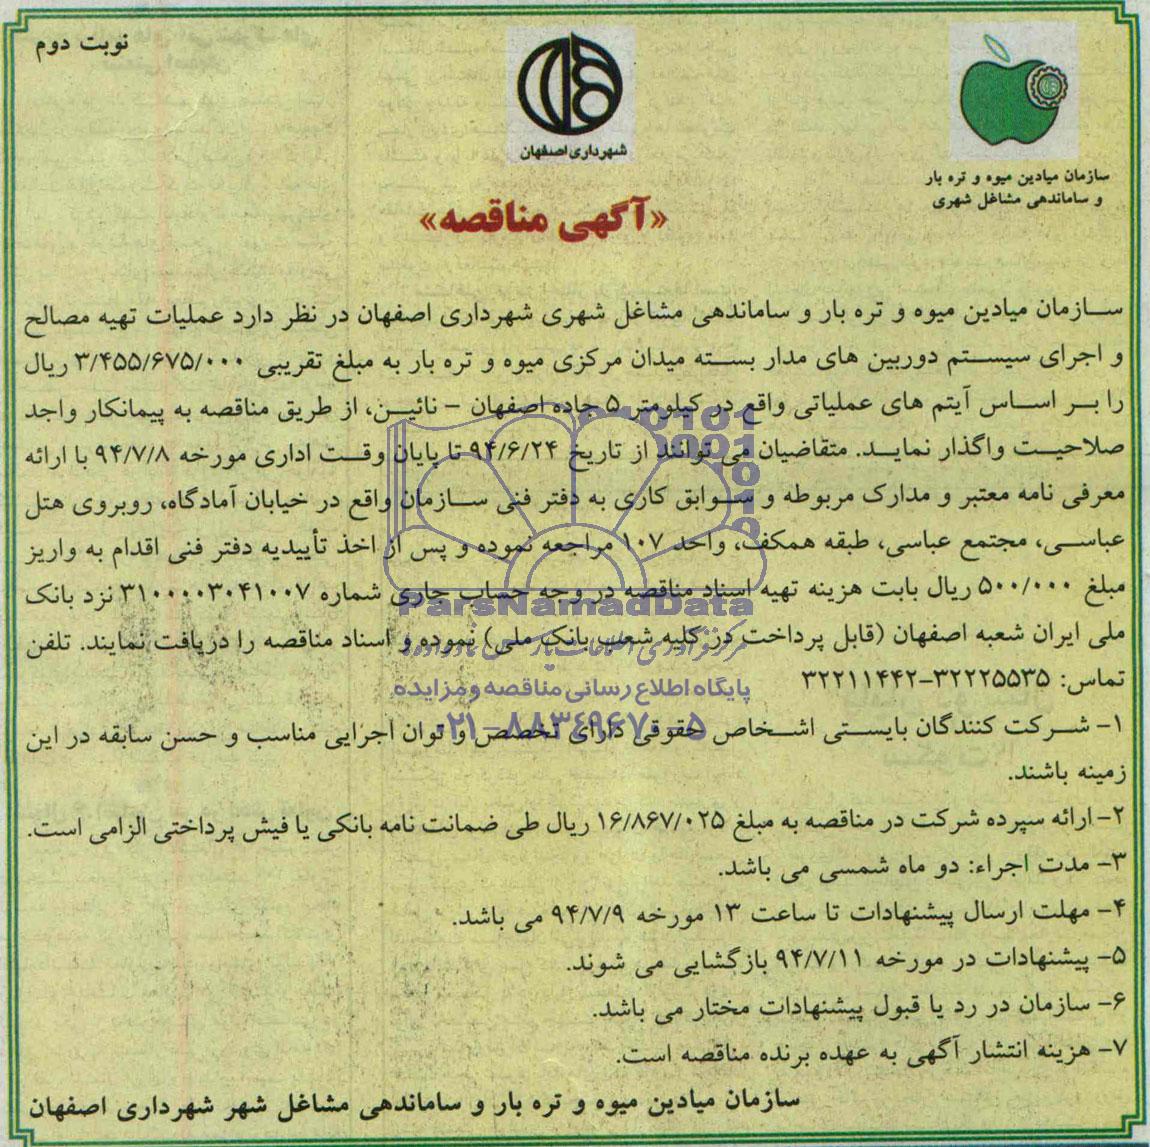 نوبت دوم
شهرداری اصفهان
سازمان میادین میوه و تره بار
و ساماندهی مشاغل شهری
«آگهی مناقصه»
سازمان میادین میوه و تره بار و ساماندهی مشاغل شهری شهرداری اصفهان در نظر دارد عملیات تهیه مصالح
و اجرای سیستم دوربین های مدار بسته میدان مرکزی میوه و تره بار به مبلغ تقریبی ۳/۴۵۵/۶۷۵/۰۰۰ ریال
را بر اساس آیتم های عملیاتی واقع در کیلومتر ۵ جاده اصفهان - نائین، از طریق مناقصه به پیمانکار واجد
صلاحیت واگذار نماید. متقاضیان می توانند از تاریخ ۹۴/۶/۲۴ تا پایان وقت اداری مورخه ۹۴/۷/۸ با ارائه
معرفی نامه معتبر و مدارک مربوطه و سوابق کاری به دفتر فنی سازمان واقع در خیابان آمادگاه، روبروی هتل
عباسی، مجتمع عباسی، طبقه همکف، واحد ۱۰۷ مراجعه نموده و پس از اخذ تأییدیه دفتر فنی اقدام به واریز
مبلغ ۵۰۰/۰۰۰ ریال بابت هزینه تهیه اسناد مناقصه در وجه حساب جاری شماره ۳۱۰۰۰۰۳۰۴۱۰۰۷ نزد بانک
ملی ایران شعبه اصفهان (قابل پرداخت در کلیه شعب بانک ملی) نموده و اسناد مناقصه را دریافت نمایند. تلفن
تماس: ۳۲۲۲۵۵۳۵-۳۲۲۱۱۴۴۲
۱- شرکت کنندگان بایستی اشخاص حقوقی دارای تخصص و توان اجرایی مناسب و حسن سابقه در این
زمینه باشند.
۲- ارائه سپرده شرکت در مناقصه به مبلغ ۱۶/۸۶۷/۰۲۵ ریال طی ضمانت نامه بانکی یا فیش پرداختی الزامی است.
۳- مدت اجراء: دو ماه شمسی می باشد.
۴- مهلت ارسال پیشنهادات تا ساعت ۱۳ مورخه ۹۴/۷/۹ می باشد.
۵- پیشنهادات در مورخه ۹۴/۷/۱۱ بازگشایی می شوند.
۶- سازمان در رد یا قبول پیشنهادات مختار می باشد.
۷- هزینه انتشار آگهی به عهده برنده مناقصه است.
سازمان میادین میوه و تره بار و ساماندهی مشاغل شهر شهرداری اصفهان
ParsNamadData
پایگاه اطلاع رسانی مناقصه و مزایده
۰۲۱-۸۸۳۴۹۶۷۰-۵